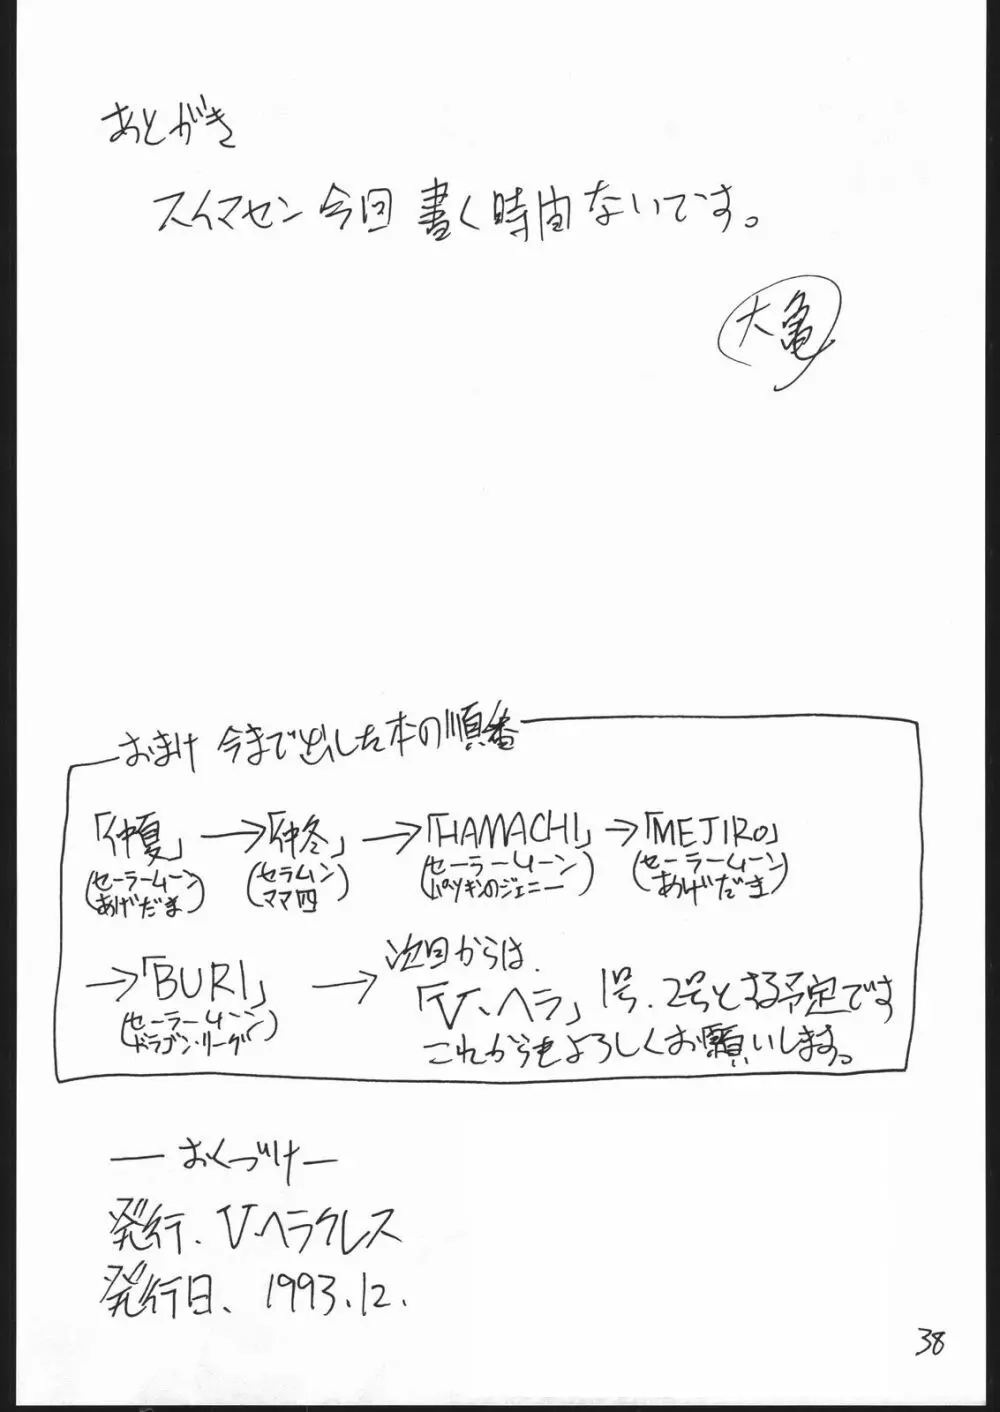 あとがき
スイマセン今回書く時間ないです。
大亀
おまけ 今まで出した本の順番
「仲夏」→「仲冬」→「HAMACHI」→「MEJIRO」
(セーラームーン あげだま) (セラムン ママ四) (セーラームーン パツキンのジェニー) (セーラームーン あげだま)
→「BURI」→次回からは、
(セーラームーン ドラゴン・リーグ)
「V、ヘラ」1号、2号とする予定です
これからもよろしくお願いします。
―おくづけ―
発行、V、ヘラクレス
発行日、1993.12.
38